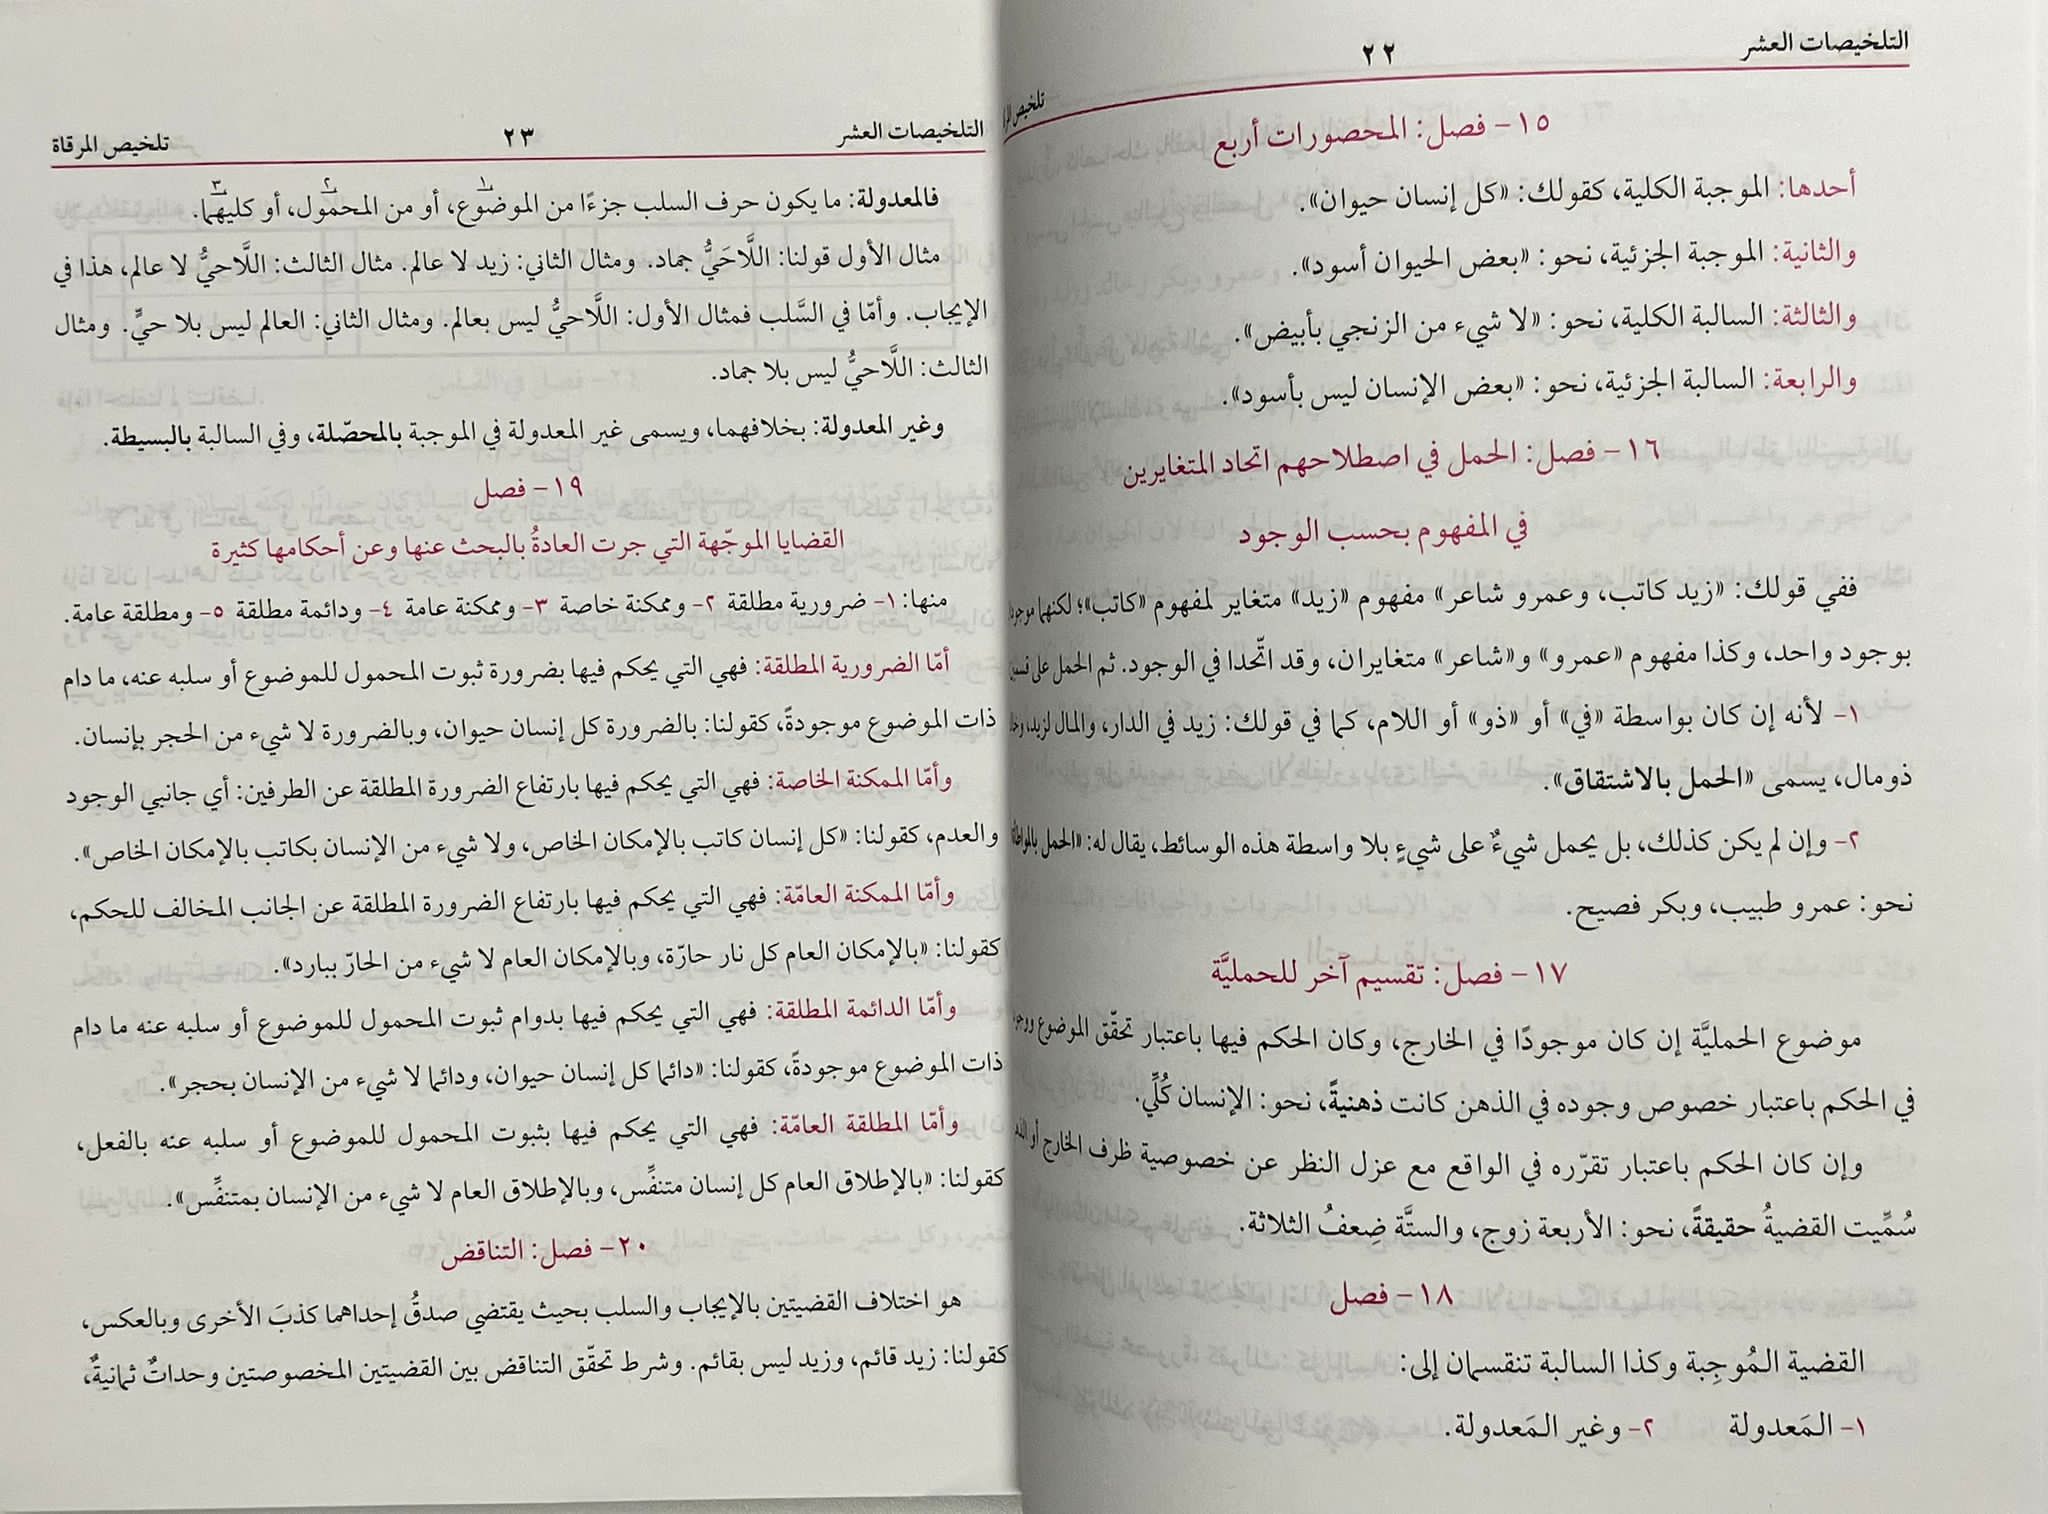 التلخيصات العشر
٢٢
تلخيص
١٥- فصل: المحصورات أربع
أحدها: الموجبة الكلية، كقولك: «كل إنسان حيوان».
والثانية: الموجبة الجزئية، نحو: «بعض الحيوان أسود».
والثالثة: السالبة الكلية، نحو: «لا شيء من الزنجي بأبيض».
والرابعة: السالبة الجزئية، نحو: «بعض الإنسان ليس بأسود».
١٦- فصل: الحمل في اصطلاحهم اتحاد المتغايرين
في المفهوم بحسب الوجود
ففي قولك: «زيد كاتب، وعمرو شاعر» مفهوم «زيد» متغاير لمفهوم «كاتب»؛ لكنهما
بوجود واحد، وكذا مفهوم «عمرو» و«شاعر» متغايران، وقد اتّحدا في الوجود. ثم الحمل على
١- لأنه إن كان بواسطة «في» أو «ذو» أو اللام، كما في قولك: زيد في الدار، والمال لزيد،
ذومال، يسمى «الحمل بالاشتقاق».
٢- وإن لم يكن كذلك، بل يحمل شيءٌ على شيءٍ بلا واسطة هذه الوسائط، يقال له: «الحمل
نحو: عمرو طبيب، وبكر فصيح.
١٧- فصل: تقسيم آخر للحمليَّة
موضوع الحمليَّة إن كان موجودًا في الخارج، وكان الحكم فيها باعتبار تحقّق الموضوع
في الحكم باعتبار خصوص وجوده في الذهن كانت ذهنيةً، نحو: الإنسان كُلِّي.
وإن كان الحكم باعتبار تقرّره في الواقع مع عزل النظر عن خصوصية ظرف الخارج أو
سُمِّيت القضيةُ حقيقةً، نحو: الأربعة زوج، والستَّة ضِعفُ الثلاثة.
١٨- فصل
القضية المُوجِبة وكذا السالبة تنقسمان إلى:
١- المَعدولة ٢- وغير المَعدولة.
التلخيصات العشر
٢٣
تلخيص المرقاة
فالمعدولة: ما يكون حرف السلب جزءًا من الموضوع١، أو من المحمول٢، أو كليهما٣.
مثال الأول قولنا: اللَّاحَيُّ جماد. ومثال الثاني: زيد لا عالم. مثال الثالث: اللَّاحيُّ لا عالم، هذا في
الإيجاب. وأمّا في السَّلب فمثال الأول: اللَّاحيُّ ليس بعالم. ومثال الثاني: العالم ليس بلا حيٍّ. ومثال
الثالث: اللَّاحيُّ ليس بلا جماد.
وغير المعدولة: بخلافهما، ويسمى غير المعدولة في الموجبة بالمحصّلة، وفي السالبة بالبسيطة.
١٩- فصل
القضايا الموجّهة التي جرت العادةُ بالبحث عنها وعن أحكامها كثيرة
منها: ١- ضرورية مطلقة ٢- وممكنة خاصة ٣- وممكنة عامة ٤- ودائمة مطلقة ٥- ومطلقة عامة.
أمّا الضرورية المطلقة: فهي التي يحكم فيها بضرورة ثبوت المحمول للموضوع أو سلبه عنه، ما دام
ذات الموضوع موجودةً، كقولنا: بالضرورة كل إنسان حيوان، وبالضرورة لا شيء من الحجر بإنسان.
وأمّا الممكنة الخاصة: فهي التي يحكم فيها بارتفاع الضرورة المطلقة عن الطرفين: أي جانبي الوجود
والعدم، كقولنا: «كل إنسان كاتب بالإمكان الخاص، ولا شيء من الإنسان بكاتب بالإمكان الخاص».
وأمّا الممكنة العامّة: فهي التي يحكم فيها بارتفاع الضرورة المطلقة عن الجانب المخالف للحكم،
كقولنا: «بالإمكان العام كل نار حارّة، وبالإمكان العام لا شيء من الحارّ ببارد».
وأمّا الدائمة المطلقة: فهي التي يحكم فيها بدوام ثبوت المحمول للموضوع أو سلبه عنه ما دام
ذات الموضوع موجودةً، كقولنا: «دائما كل إنسان حيوان، ودائما لا شيء من الإنسان بحجر».
وأمّا المطلقة العامّة: فهي التي يحكم فيها بثبوت المحمول للموضوع أو سلبه عنه بالفعل،
كقولنا: «بالإطلاق العام كل إنسان متنفِّس، وبالإطلاق العام لا شيء من الإنسان بمتنفِّس».
٢٠- فصل: التناقض
هو اختلاف القضيتين بالإيجاب والسلب بحيث يقتضي صدقُ إحداهما كذبَ الأخرى وبالعكس،
كقولنا: زيد قائم، وزيد ليس بقائم. وشرط تحقّق التناقض بين القضيتين المخصوصتين وحداتٌ ثمانيةٌ،